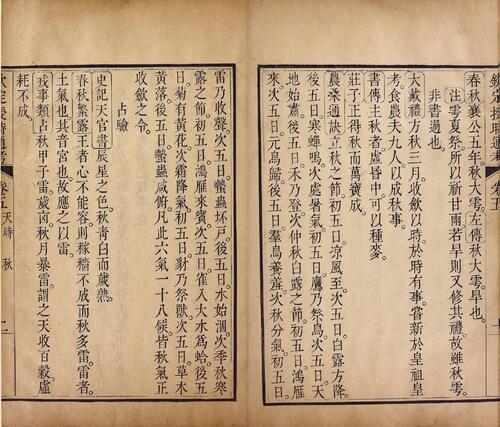 春秋襄公五年秋大雩。左傳旱也。
注雩夏祭所以祈甘雨若旱則又修其禮故雖秋雩。
非書過也。
大戴禮方秋三月收斂以時於時有事。嘗新於皇祖皇
考食農夫九人以成秋事。
書傳主秋者。虛昏中。可以種麥。
莊子正得秋而萬寶成。
農桑通訣立秋之節。初五日涼風至。次五日白露方降。
後五日寒蟬鳴。次處暑氣。初五日鷹乃祭鳥。次五日天
地始肅。後五日禾乃登。次仲秋白露之節。初五日鴻雁
來。次五日元鳥歸。後五日羣鳥養羞。次秋分氣。初五日
雷乃收聲。次五日蟄蟲坏戶。後五日水始涸。次季秋寒
露之節。初五日鴻雁來賓。次五日雀入大水爲蛤。後五
日菊有黃花。次霜降氣。初五日豺乃祭獸。次五日草木
黃落。後五日蟄蟲咸俯。凡此六氣一十八候。皆秋氣正
收斂之令。
占驗
史記天官書辰星之色。秋青白而歲熟。
春秋繁露王者心不能容。則稼穡不成。而秋多雷。雷者。
土氣也。其音宮也。故應之以雷。
戎事類占秋甲子雷。歲凶。秋月暴雷。謂之天收百穀虛
耗不成。
卷五 天時 秋